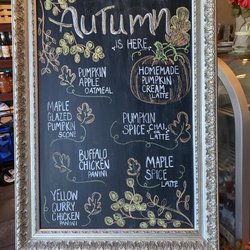 AUTUMN
IS HERE
PUMPKIN
APPLE
OATMEAL
HOMEMADE
PUMPKIN
CREAM
LATTE
MAPLE
GLAZED
PUMPKIN
SCONE
PUMPKIN
SPICE CHAI
LATTE
BUFFALO
CHICKEN
PANINI
MAPLE
SPICE
LATTE
YELLOW
CURRY
CHICKEN
PANINI